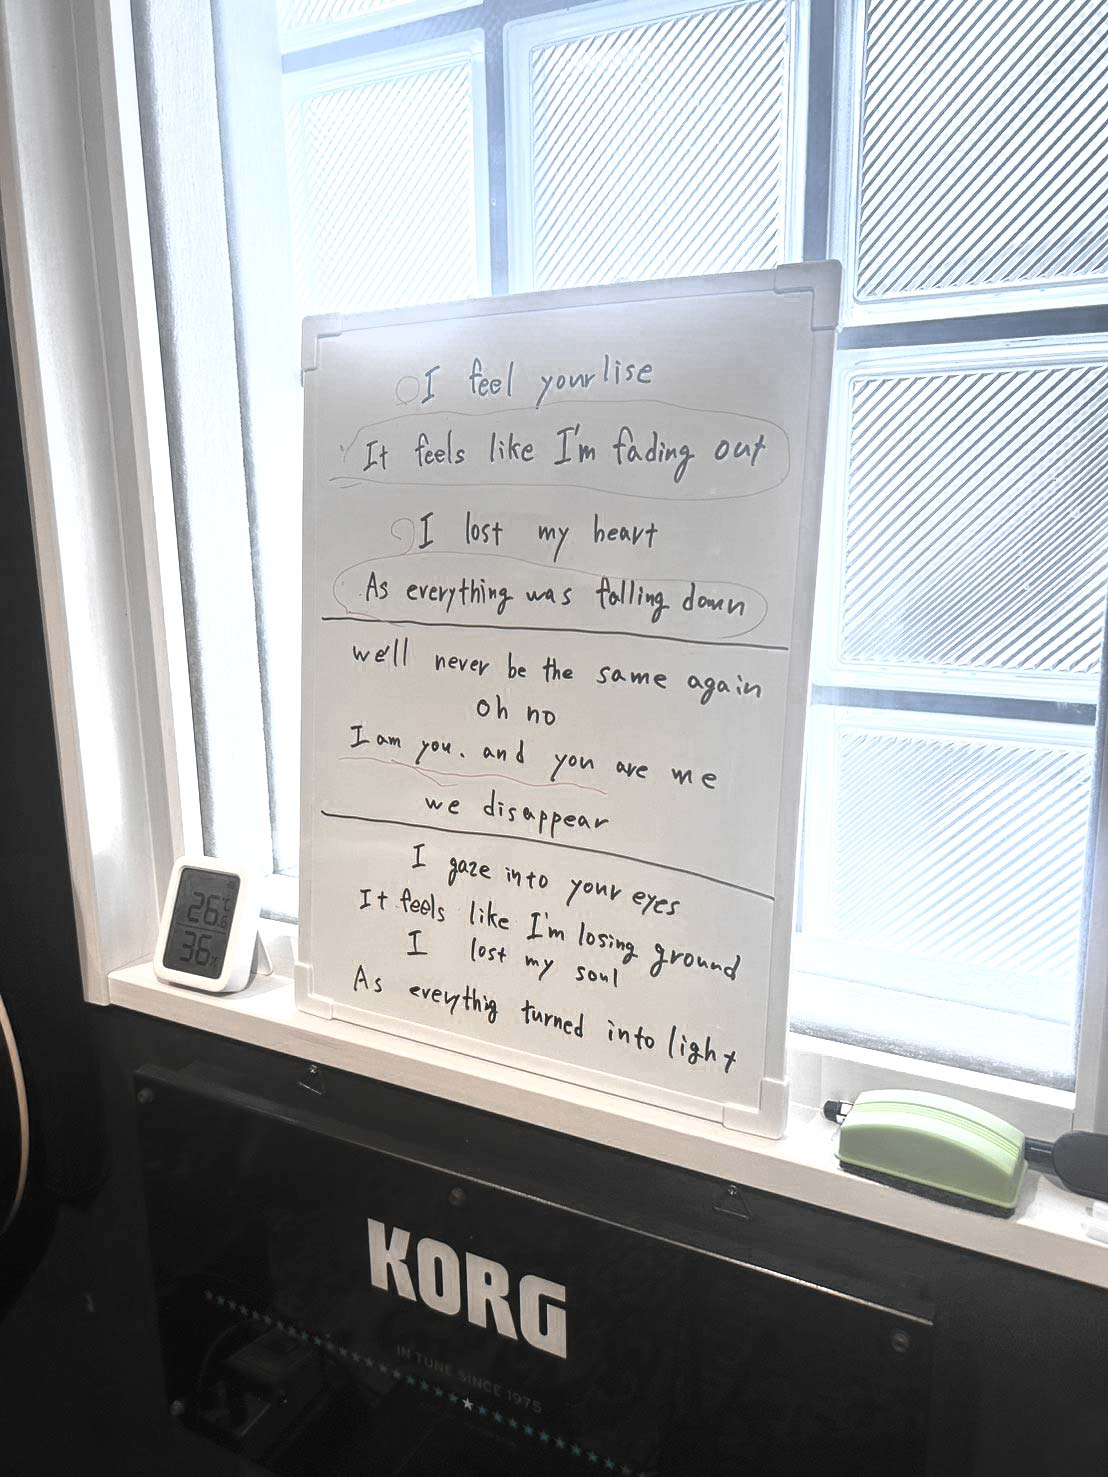 I feel your lise
It feels like I'm fading out
I lost my heart
As everything was falling down
we'll never be the same again
oh no
I am you. and you are me
we disappear
I gaze into your eyes
It feels like I'm losing ground
I lost my soul
As everythig turned into light
26.6°C
36%
KORG
IN TUNE SINCE 1975